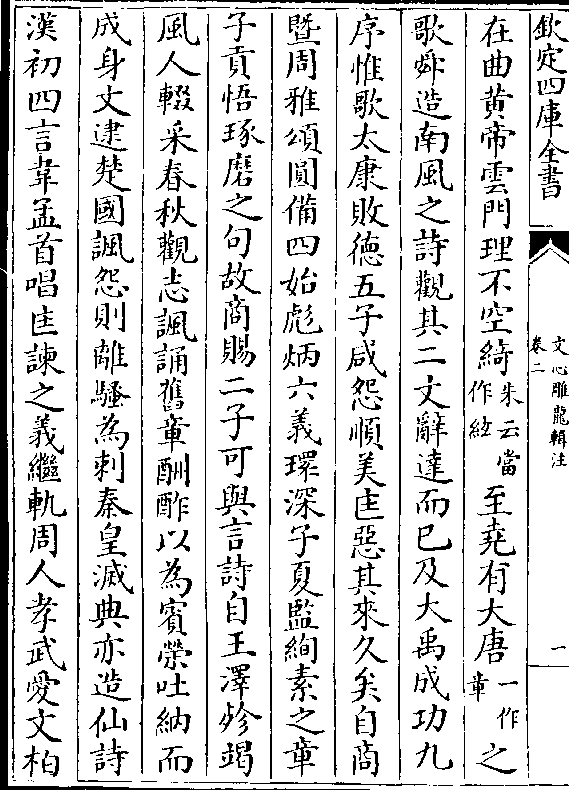 欽定四庫全書
文心雕龍輯注
卷二
一
在曲黄帝雲門理不空綺朱云當作絃至堯有大唐一作章之
歌舜造南風之詩觀其二文辭達而已及大禹成功九
序惟歌太康敗德五子咸怨順美匡惡其來久矣自商
暨周雅頌圓備四始彪炳六義環深子夏監絢素之章
子貢悟琢磨之句故商賜二子可與言詩自王澤殄竭
風人輟采春秋觀志諷誦舊章酬酢以為賓榮吐納而
成身文逮楚國諷怨則離騷為刺秦皇滅典亦造仙詩
漢初四言韋孟首唱匡諫之義繼軌周人孝武愛文柏